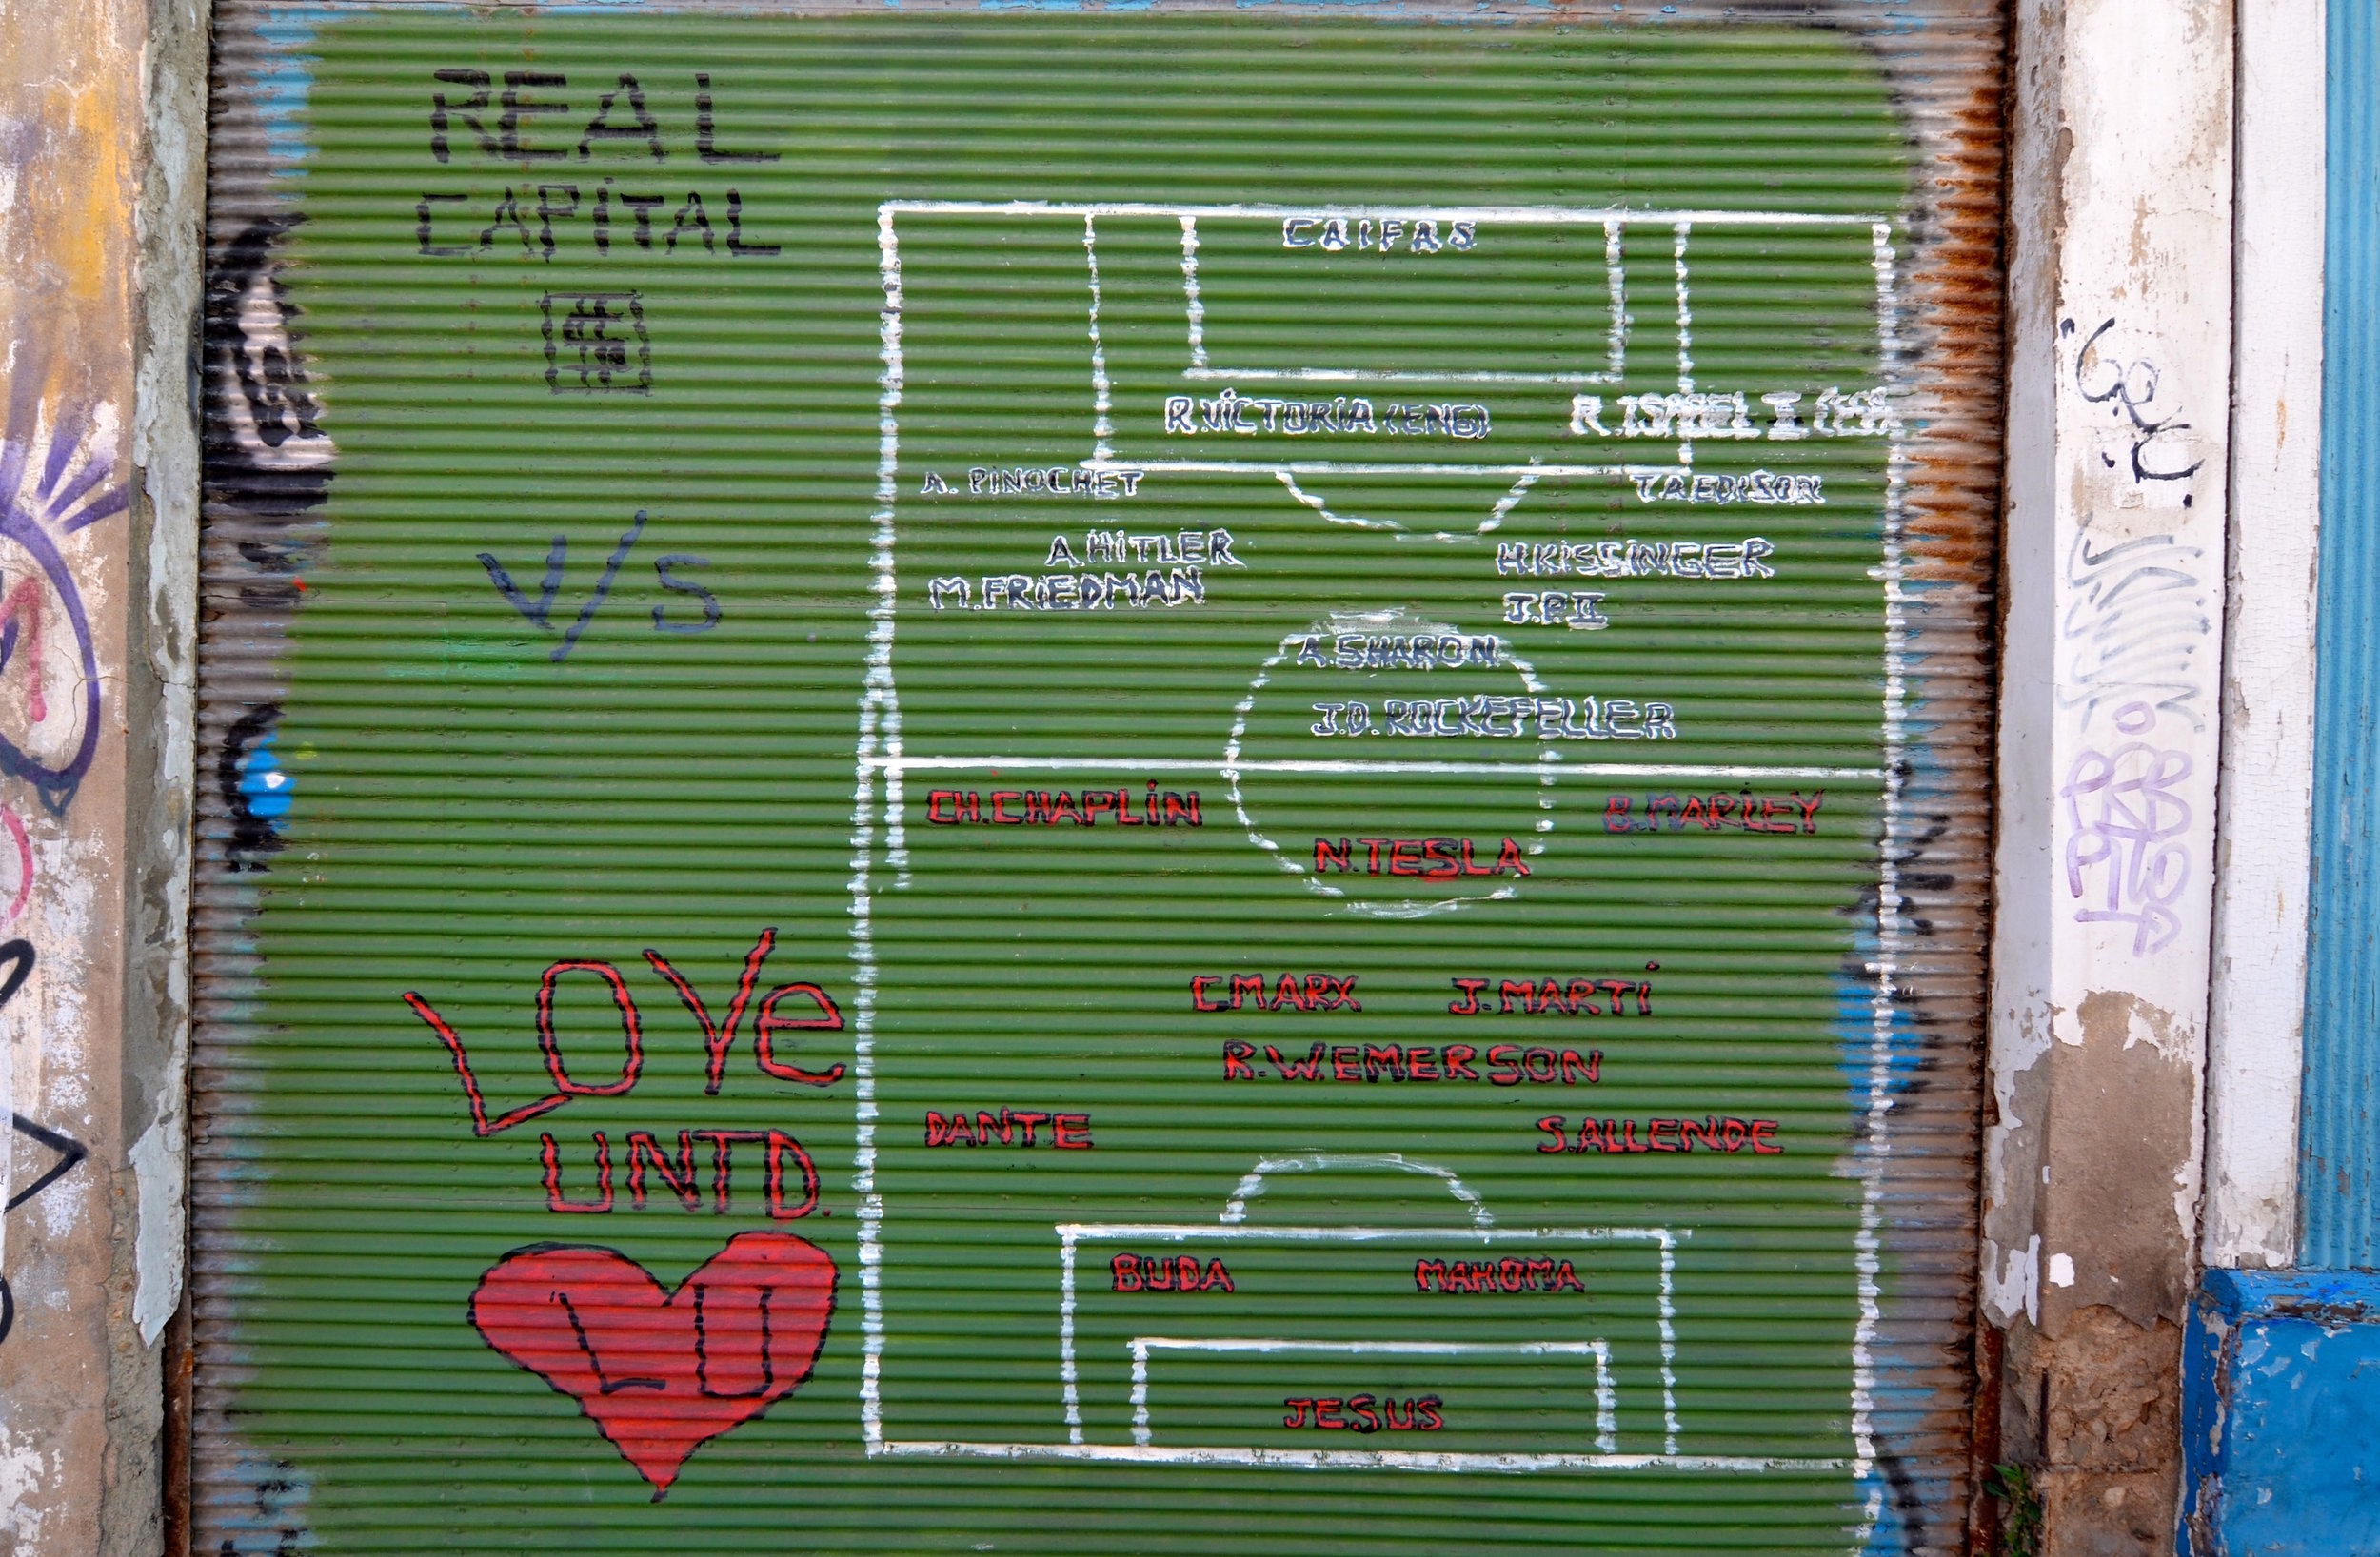 REAL
CAPiTAL
$
V/S
LOVe
UNTD.
LU
CAIFAS
R.ViCTORiA (ENG) R. ISABEL II
A. PiNOCHET T.A EDISON
A. HiTLER H.KISSINGER
M.FRiEDMAN J.P.II
A. SHARON
J.D. ROCKEFELLER
CH.CHAPLiN B.MARLEY
N.TESLA
C MARX J.MARTi
R.W.EMERSON
DANTE S.ALLENDE
BUDA MAHOMA
JESUS
PITO